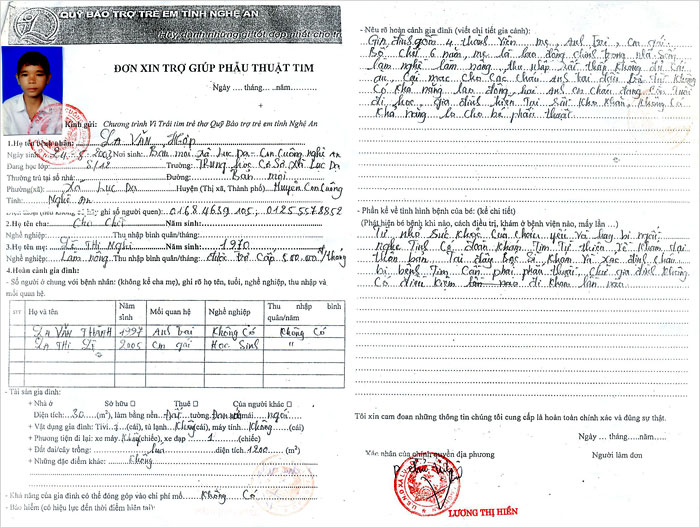 QUỸ BẢO TRỢ TRẺ EM TỈNH NGHỆ AN
ĐƠN XIN TRỢ GIÚP PHẪU THUẬT TIM
Ngày .... tháng....năm.........
Kính gửi: Chương trình Vì Trái tim trẻ thơ Quỹ Bảo trợ trẻ em tỉnh Nghệ An
1.Họ tên bệnh nhân: La Văn Hợp
Ngày sinh: 24-8-2003 Nơi sinh: Bản mới Xã Lục Dạ - Con Cuông Nghệ An
Đang học lớp: 5/12 Trường: Trung học Cơ Sở Xã Lục Dạ
Thường trú tại số nhà: Đường: Bản mới
Phường(xã): Xã Lục Dạ Huyện (Thị xã, Thành phố) Huyện Con Cuông
Tỉnh: Nghệ An
ghi số người quen): 0168 4639 105, 0125 5578852
2.Họ tên cha: Cha Chết Năm sinh:
Nghề nghiệp: Thu nhập bình quân/tháng:
3.Họ tên mẹ: Lê Thị Nghi Năm sinh: 1970
Nghề nghiệp: Làm nông Thu nhập bình quân/tháng: Trợ Cấp /tháng
4.Hoàn cảnh gia đình:
- Số người ở chung với bệnh nhân: (không kể cha mẹ), ghi rõ họ tên, tuổi, nghề nghiệp, thu nhập và
mối quan hệ.
STT Họ và tên Năm sinh Mối quan hệ Nghề nghiệp Thu nhập bình quân/tháng
La Văn Thành 1997 Anh trai Không Có Không Có
La Thị Lệ 2005 Em gái Học Sinh "
- Tài sản gia đình:
+ Nhà ở Sở hữu □ Thuê □ Của người khác □
Diện tích: 30 (m²), làm bằng nền Đất tường mái ngói
+ Vật dụng gia đình: Tivi (cái), tủ lạnh Không (cái), máy tính Không (cái)
+ Phương tiện đi lại: xe máy Không (chiếc), xe đạp 1 (chiếc)
+ Đất đai/cây trồng: lúa diện tích 1200 (m²)
+ Những đặc điểm khác: Không
- Khả năng của gia đình có thể đóng góp vào chi phí mổ Không Có
- Bảo hiểm (có hiệu lực đến thời điểm hiện tại)
- Nêu rõ hoàn cảnh gia đình (viết chi tiết gia cảnh)
Gia đình gồm 4 thành viên mẹ, Anh trai, em gái
Bố Chết 6 năm mẹ là lao động chính trong nhà Sống
làm nghề làm nông, thu nhập thấp không đủ Cái
ăn, Cái mặc cho Các cháu Anh trai
Có khả năng lao động, hai em cháu đang Còn tuổi
đi học, gia đình hiện Tại rất khó khăn, không Có
khả năng lo cho bé phẫu thuật.
- Phần kể về tình hình bệnh của bé: (kể chi tiết)
(Phát hiện bé bệnh khi nào, cách điều trị, khám ở bệnh viện nào, mấy lần ...)
Từ nhỏ Sức khỏe Của cháu yếu Và hay bị mệt
Nghe Tin Có đoàn khám Tim Từ thiện Về khám tại
thôn bản. Tại đây Bác Sĩ khám Và xác định cháu
bị bệnh Tim Cần phải phẫu thuật, Chứ gia đình không
Có điều kiện lần nào đi khám lần nào
Tôi xin cam đoan những thông tin chúng tôi cung cấp là hoàn toàn chính xác và đúng sự thật.
Ngày ... tháng....năm.....
Xác nhận của chính quyền địa phương Người làm đơn
LƯƠNG THỊ HIỀN